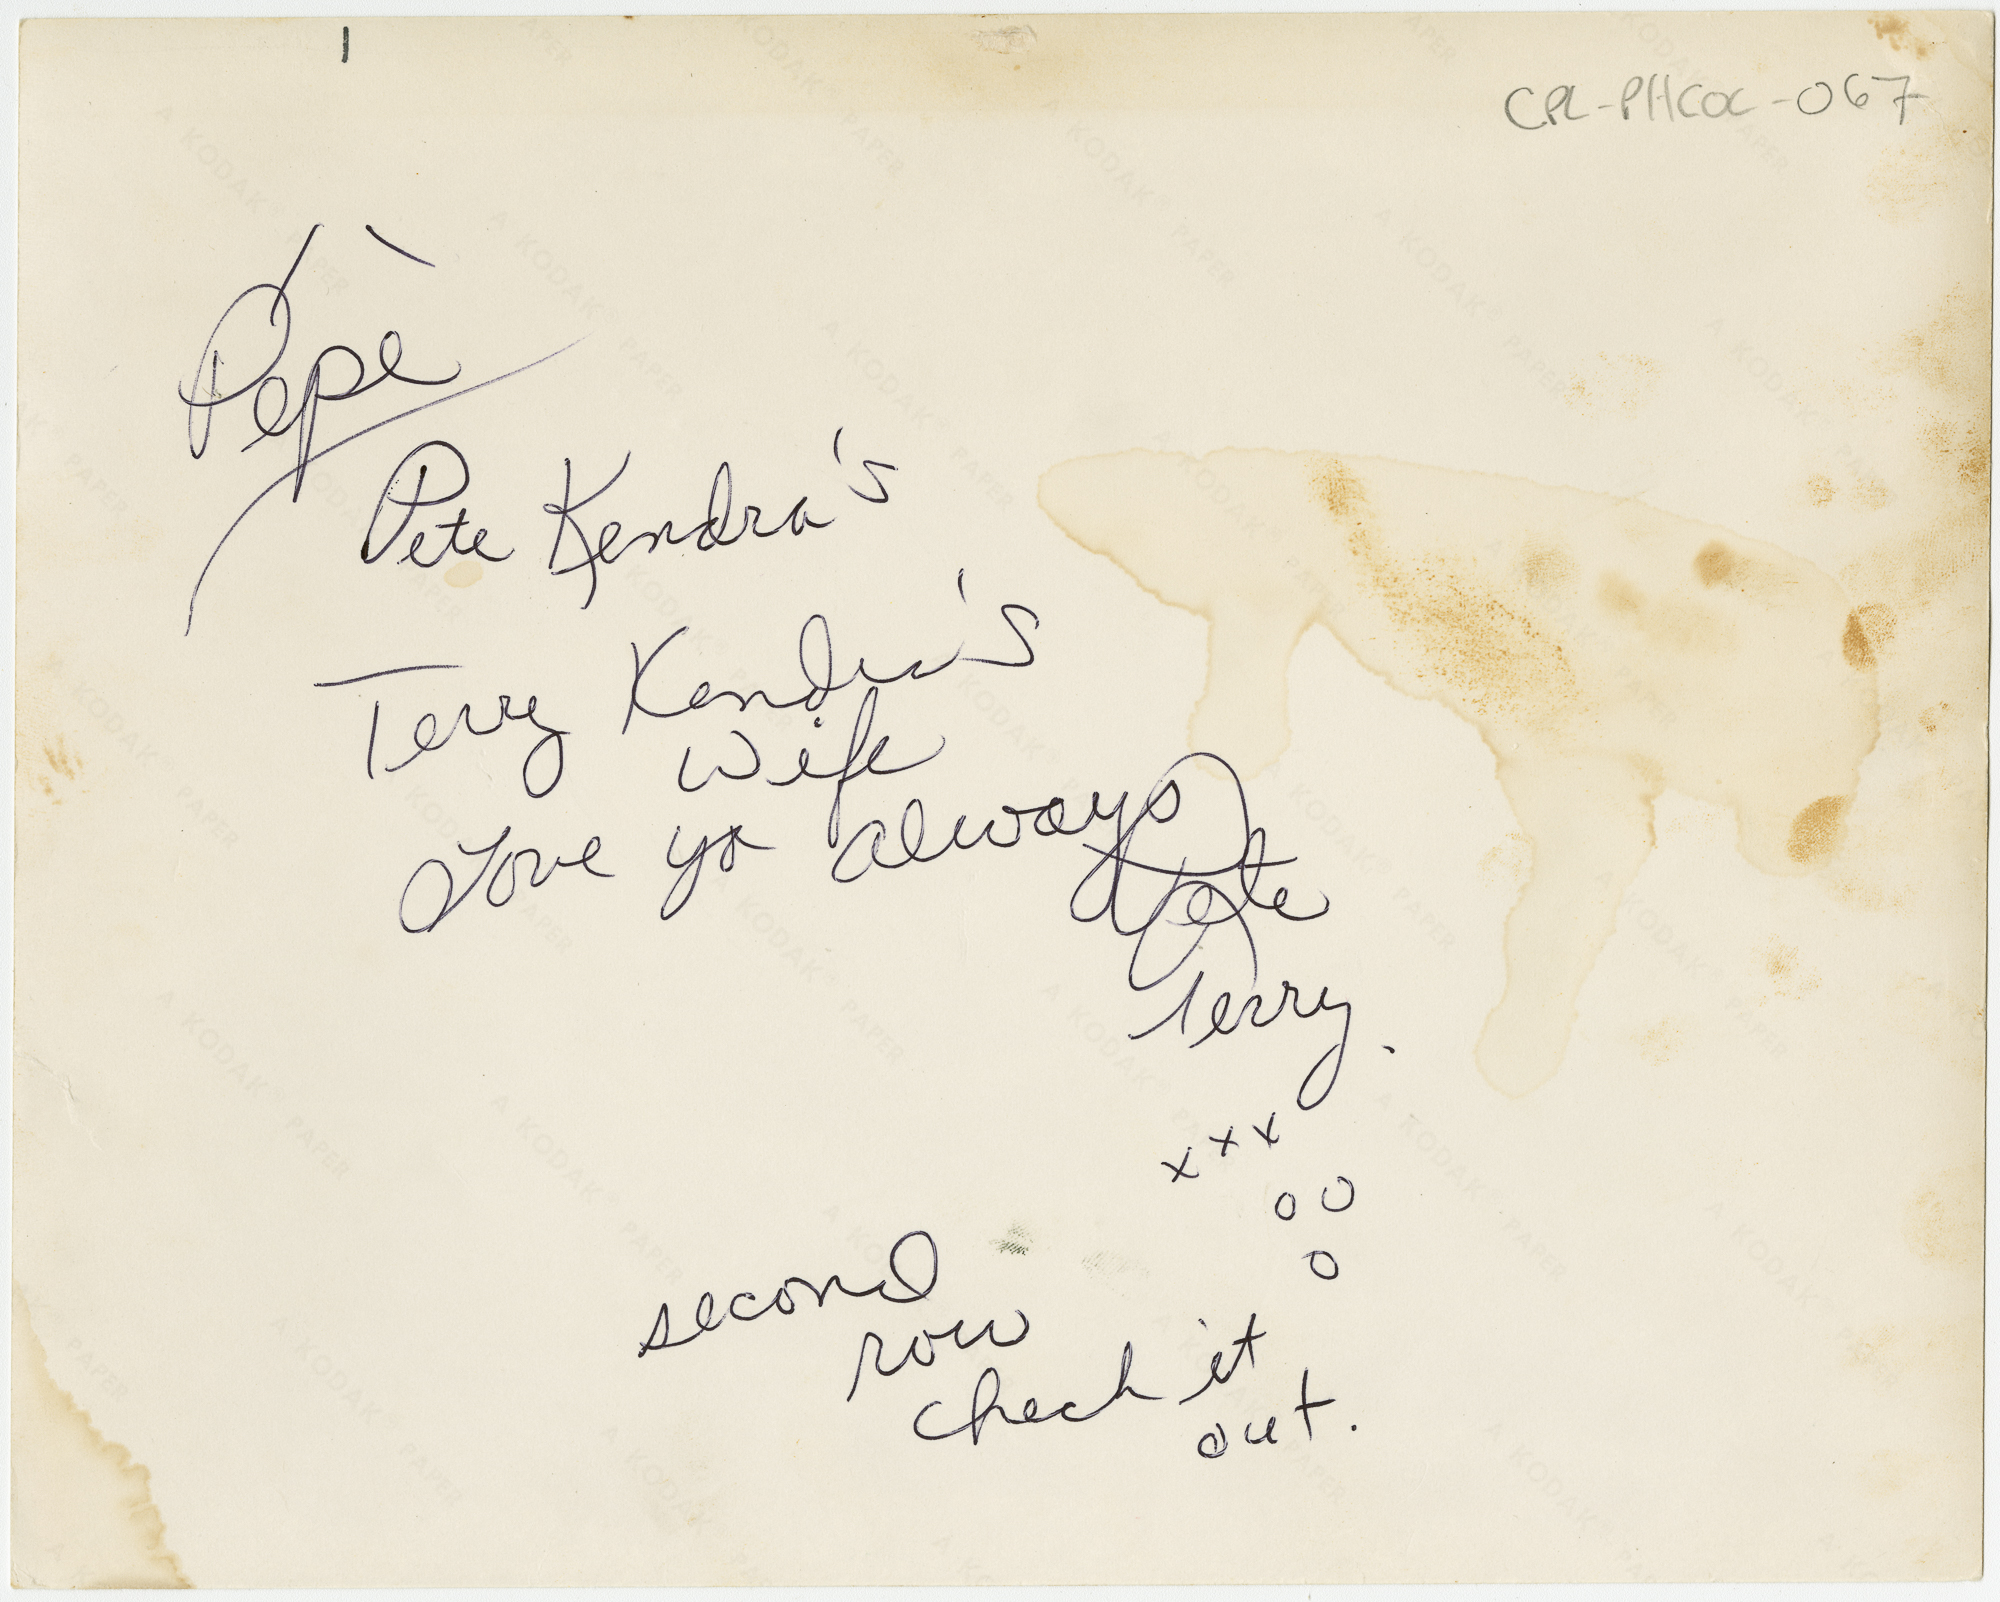 CPL-PHCOC-067
Pépè
Pete Kendra's
Terry Kendra's
wife
Love ya always
Pete
Terry.
xxx
oo
o
second
row
check it
out.
A KODAK® PAPER